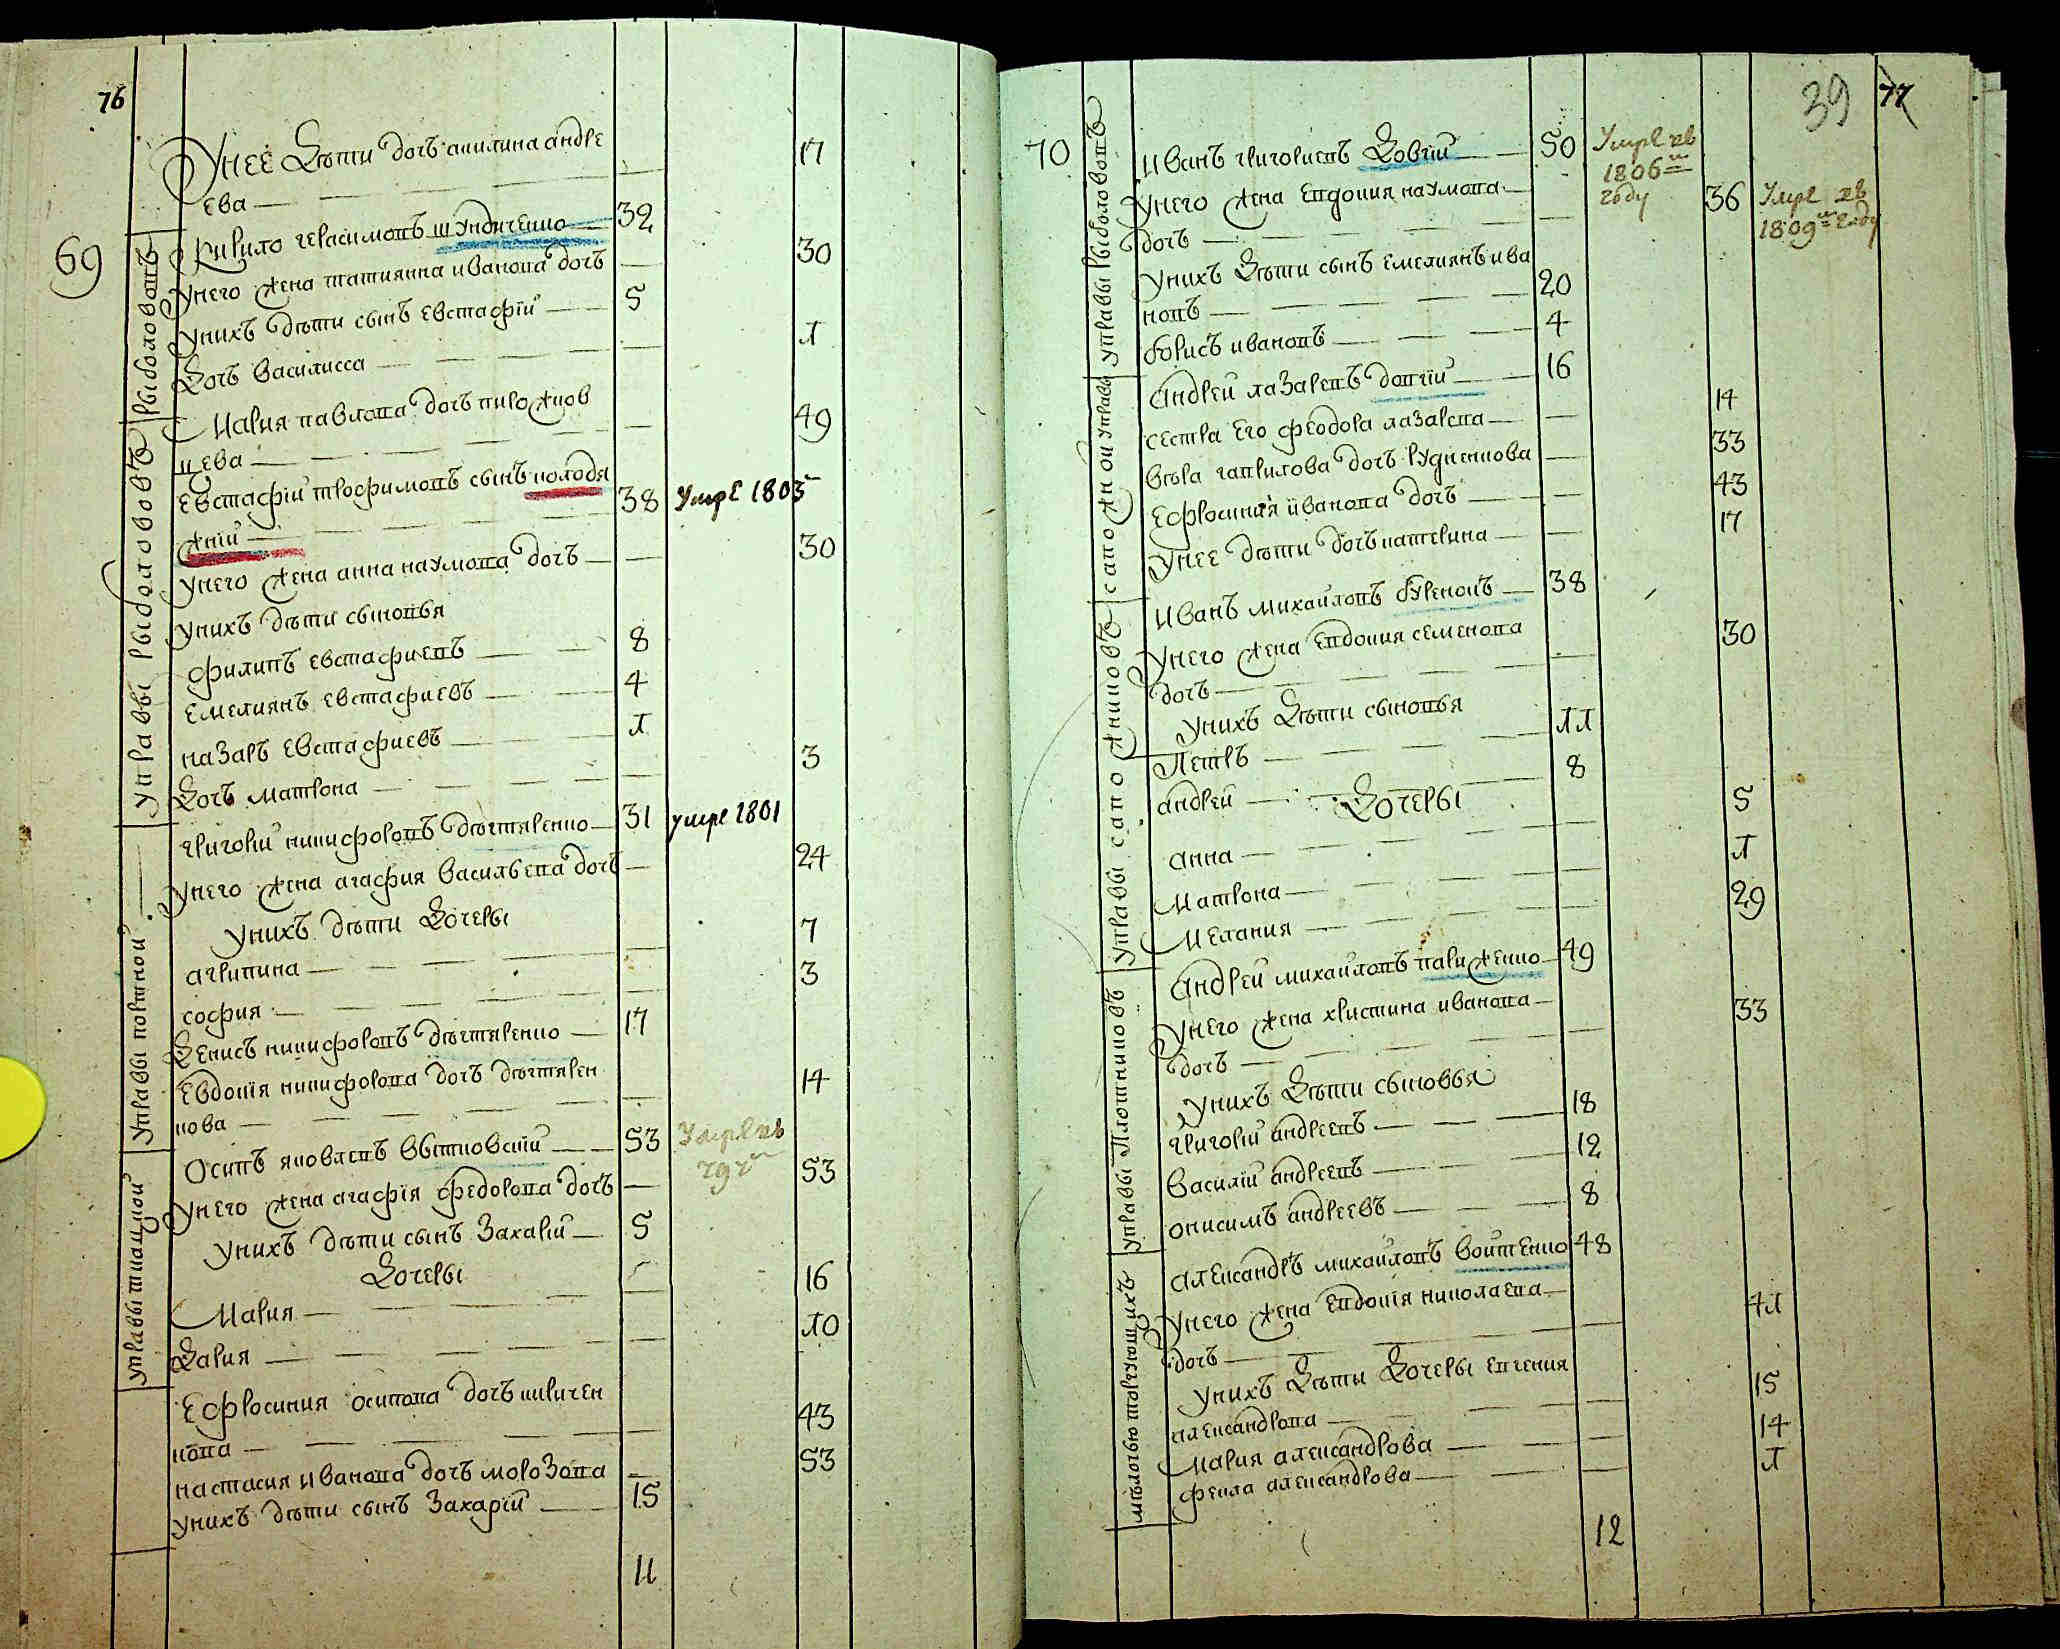 76
Унее Дѣти дочъ акилина андре 17
ева
69
управы рыболововъ
Кирило герасимовъ шкндиченко 32
Унего жена татиянна иванова дочъ 30
Унихъ дѣти сынъ евстафiй 5
Дочъ василисса 1
Мария павлова дочъ пирожков 49
цева
управы рыболововъ
Евстафiй трофимовъ сынъ колодя 38 умре 1805
жнiй
унего жена анна наумова дочъ 30
унихъ дѣти сыновья
филипъ евстафиевъ 8
емелиянъ евстафиевъ 4
назаръ евстафиевъ 1
Дочъ матрона 3
управы портной
григорiй никифоровъ дегтяренко 31 умре 1801
унего жена агафия васильева дочъ 24
унихъ дѣти Дочеры
агрипина 7
софия 3
Денисъ никифоровъ дегтяренко 17
Евдокiя никифорова дочъ дегтярен 14
кова
управы ткацкой
Осипъ яковлевъ вытковскiй 53 Умре въ
унего жена агафiя федорова дочъ 53
унихъ дѣти сынъ Захарiй 5
Дочеры
Мария 16
Дария 10
Ефросиния осипова дочъ киричен 43
кова
настасия иванова дочъ морозова 53
унихъ дѣти сынъ Захарiй 15
11
39 77
70
управы рыболововъ
Иванъ григориевъ Довгiй 50 Умре въ
1806м
году
Унего жена Евдокия наумова 36 Умре въ
1809м году
дочъ
Унихъ Дѣти сынъ емелиянъ ива 20
новъ
борисъ ивановъ 4
сапожной управы
Андрей лазаревъ довгiй 16
сестра его феодора лазарева 14
вѣра гаврилова дочъ рудченкова 33
Ефросиния иванова дочъ 43
Унее дѣти дочъ катерина 17
управы сапожниковъ
Иванъ михайловъ буренокъ 38
Унего жена Евдокия семенова 30
дочъ
Унихъ Дѣти сыновья
Петръ 11
андрей 8
Дочеры
анна 5
Матрона 1
Мелания 29
управы Плотниковъ
Андрей михайловъ париженко 49
Унего жена христина иванова 33
дочъ
Унихъ Дѣти сыновья
григорiй андреевъ 18
Василiй андреевъ 12
онисимъ андреевъ 8
мѣлочью торгующихъ
Александръ михайловъ войтенко 48
Унего жена Евдокiя николаева 41
дочъ
Унихъ Дѣти Дочеры евгения 15
александрова
Мария александрова 14
фекла александрова 1
12